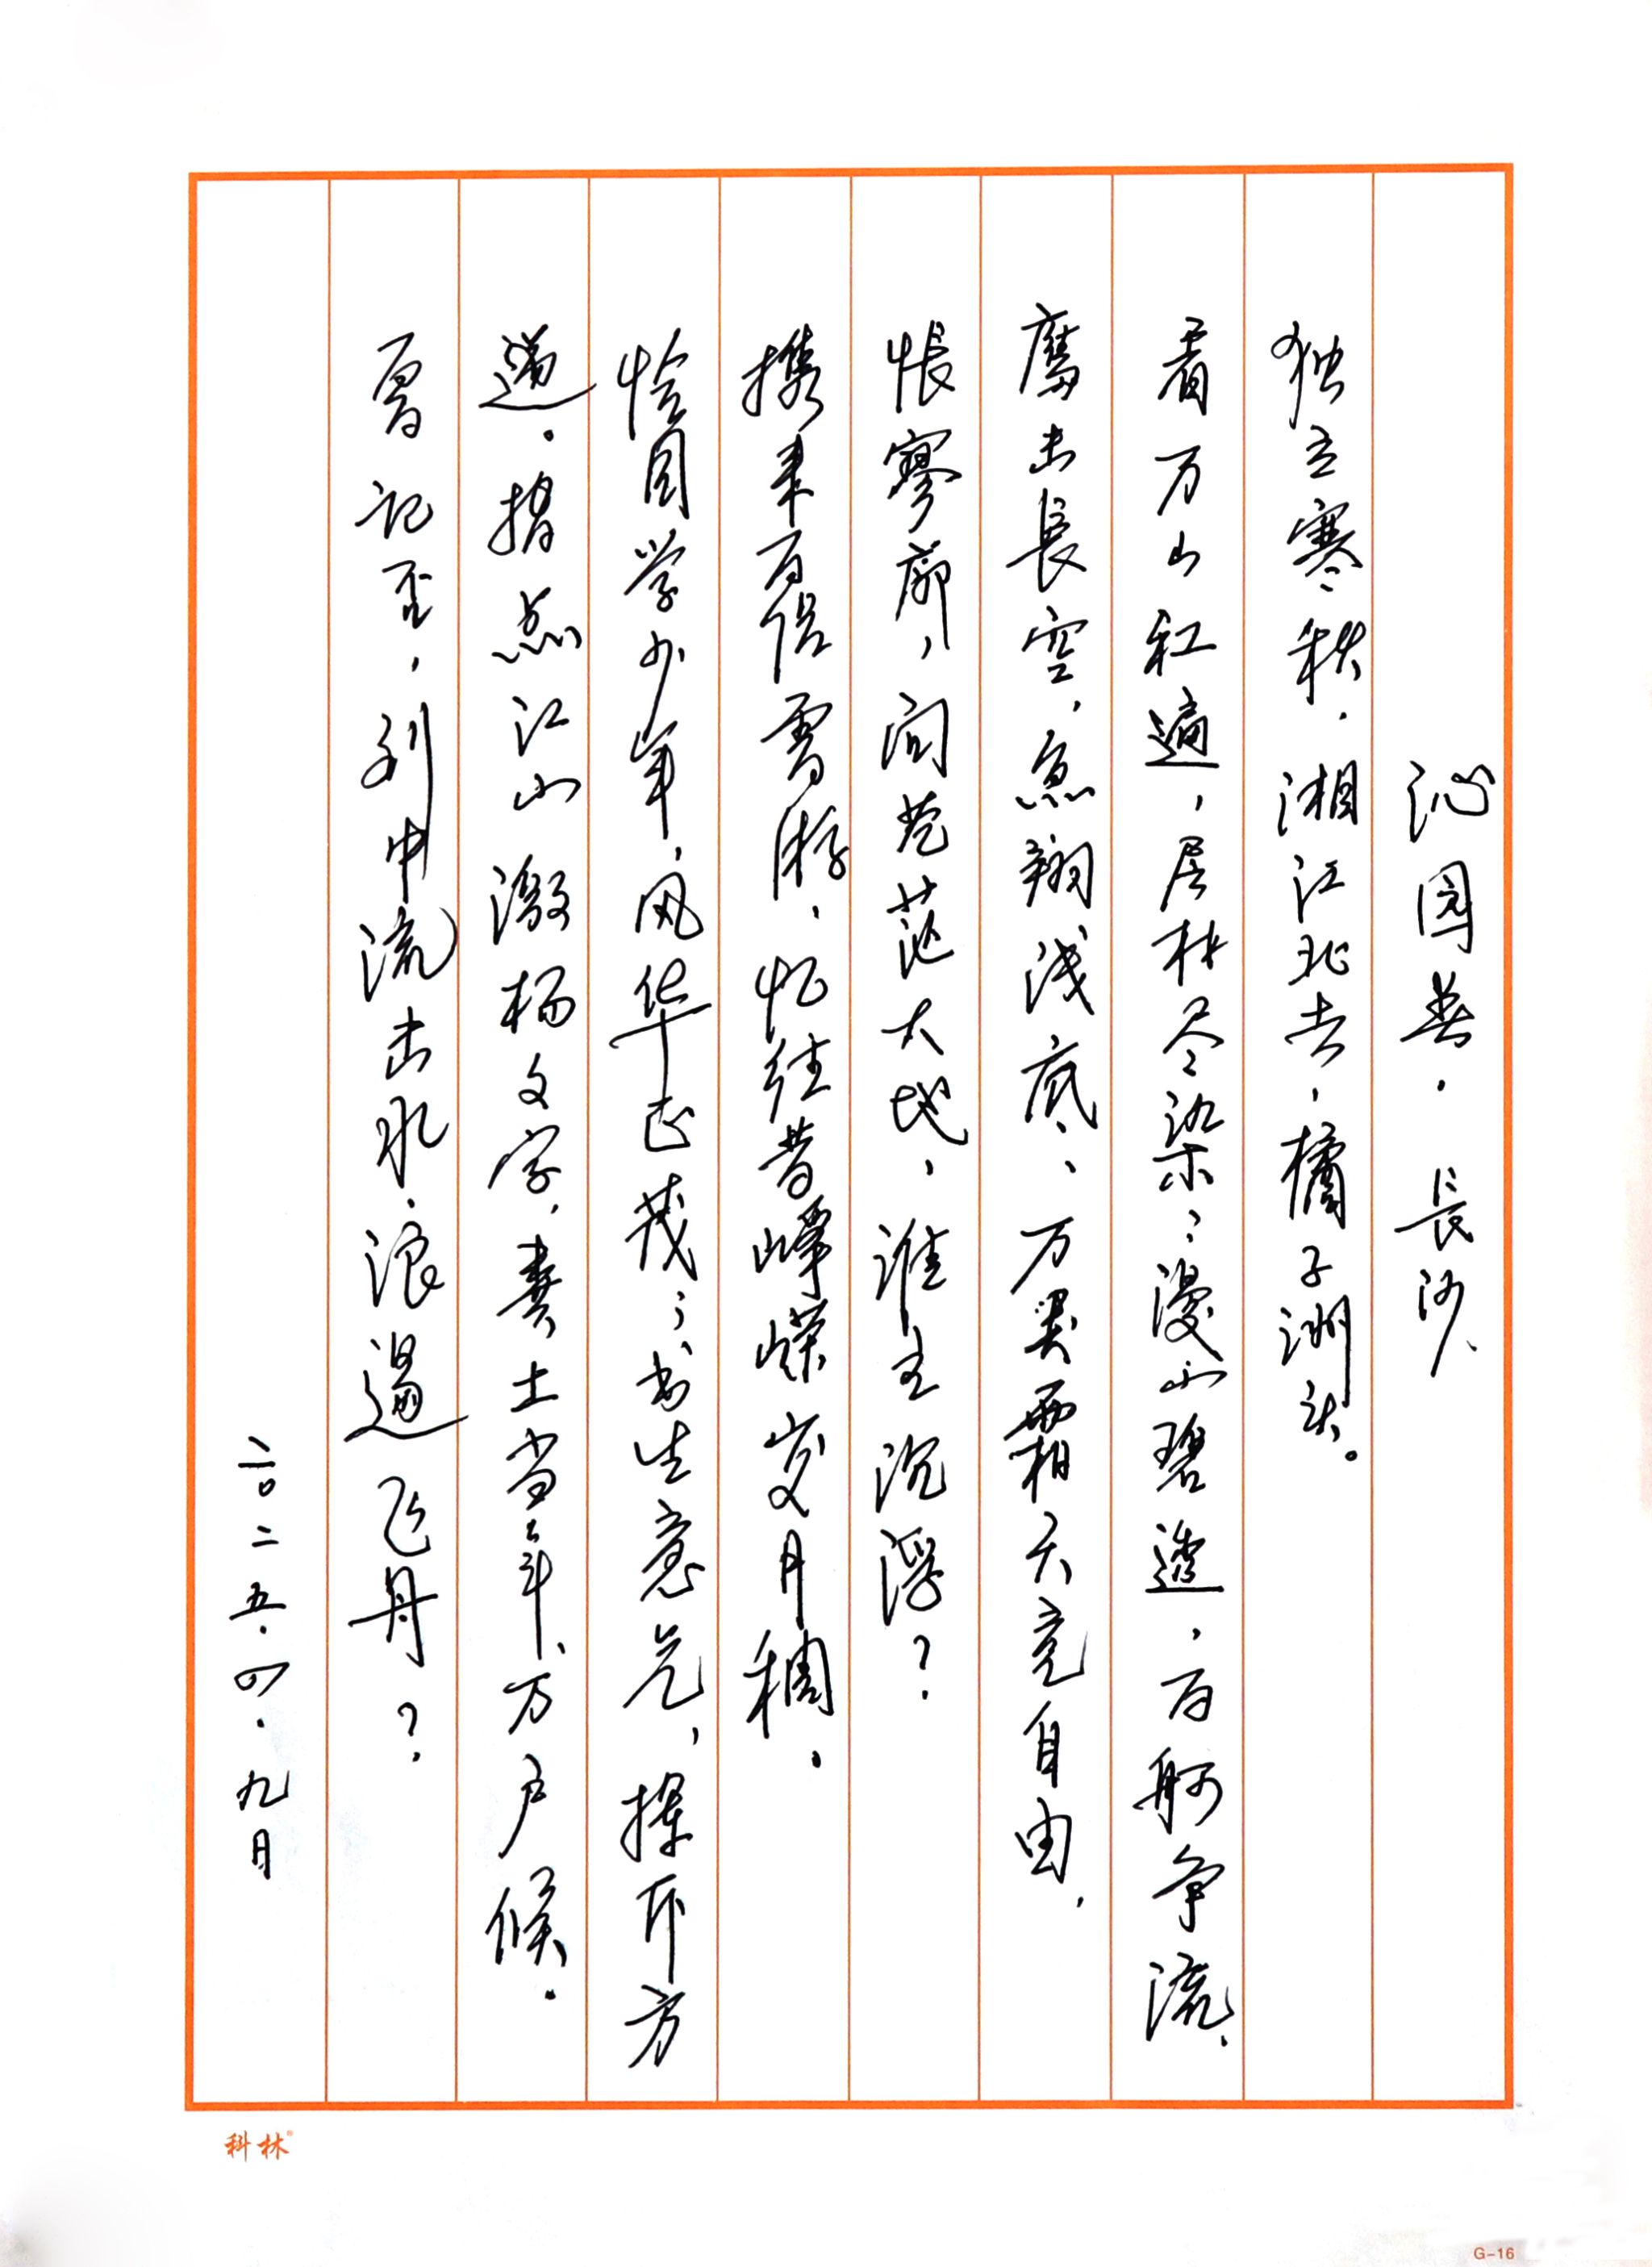 沁园春·長沙
独立寒秋，湘江北去，橘子洲头。
看万山红遍，层林尽染；漫山碧透，百舸争流，
鹰击長空，魚翔浅底，万类霜天竞自由，
怅寥廓，问苍茫大地，谁主沉浮？
携来百侣曾游，忆往昔峥嵘岁月稠，
恰同学少年，风华正茂；书生意气，挥斥方
遒。指点江山激杨文字，粪土当年万户候。
曾记否，到中流击水，浪遏飞舟？
二〇二五·四·九月
科林®
G-16